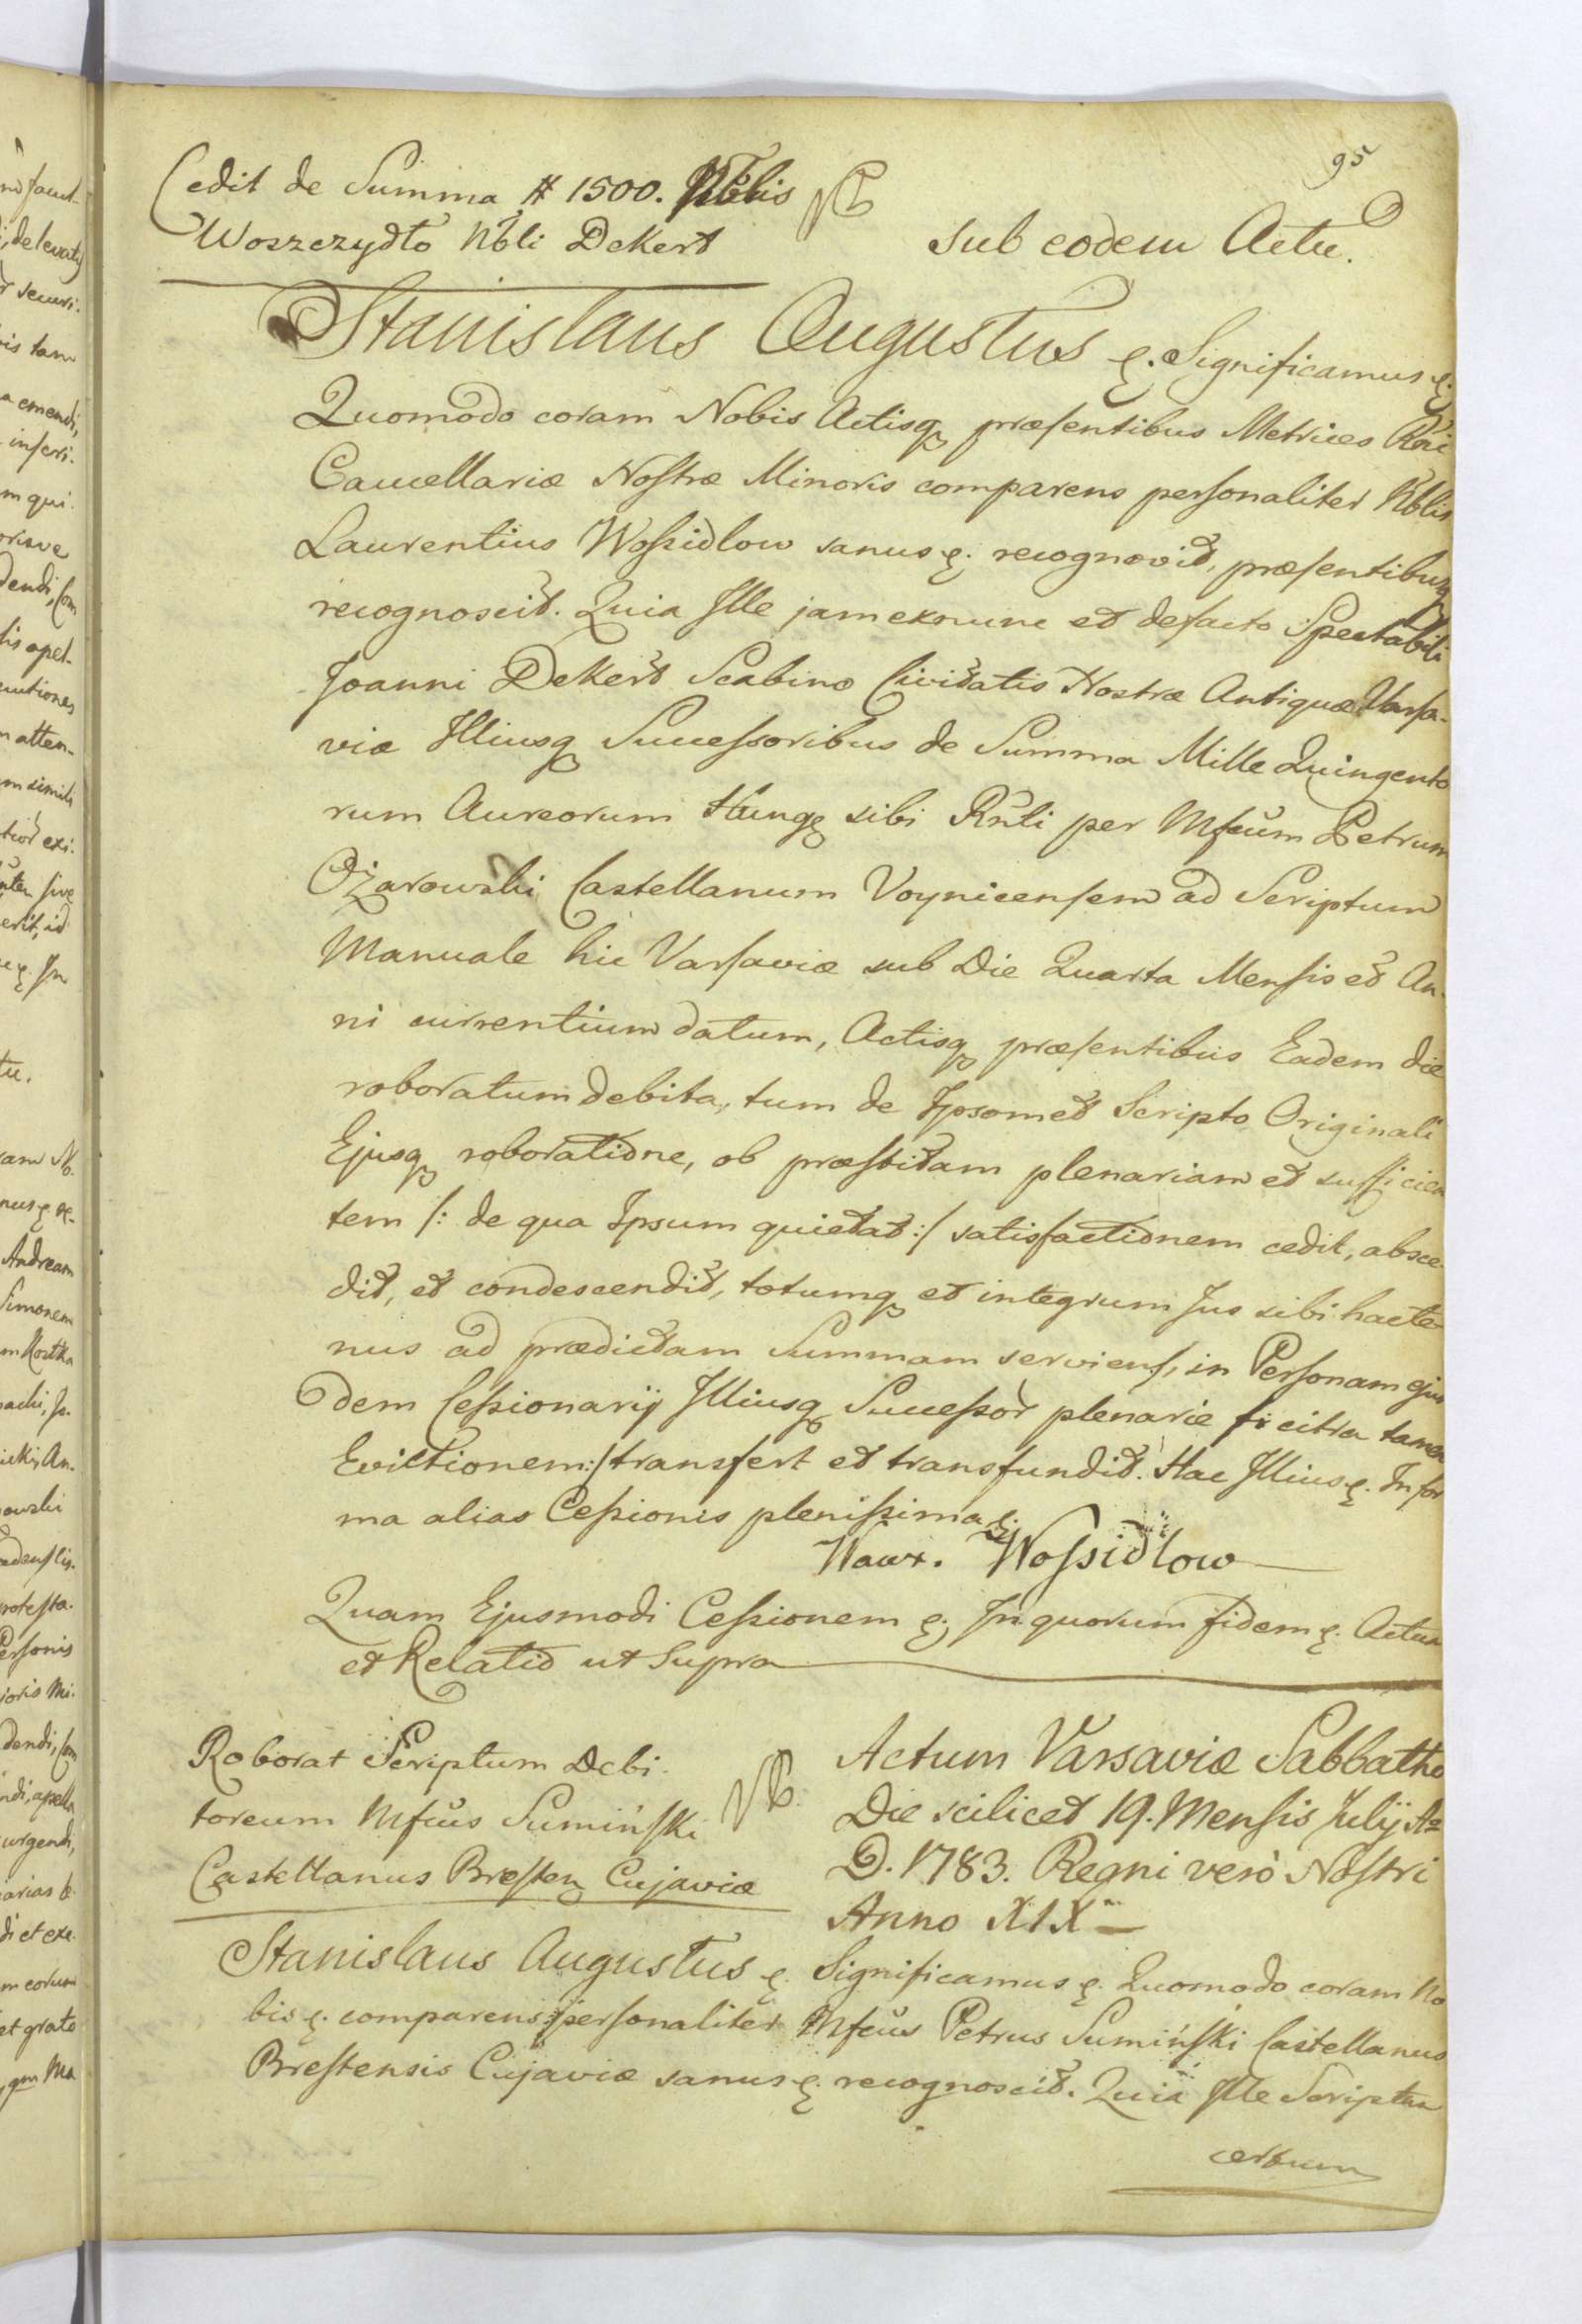 95
Cedit de Summa # 1500. Nblis
Woszczydło Nbli Dekert
Sub eodem Actu.
Stanislaus Augustus ę. Significamus ę.
Quomodo coram Nobis Actisq præsentibus Metrices Rni
Cancellariæ Nostræ Minoris comparens personaliter Nblis
Laurentius Wossidlow sanus ę. recognovit, præsentibusq
recognoscit. Quia Ille jam exnunc et defacto Spectabili
Joanni Dekert Scabino Civitatis Nostræ Antiquæ Varsa-
viæ Illiusq Successoribus de Summa Mille Quingento
rum Aureorum Hung sibi Rnli per Mfcum Petrum
Ożarowski Castellanum Voynicensem ad Scriptum
Manuale hic Varsaviæ sub Die Quarta Mensis et An-
ni currentium datum, Actisq præsentibus Eadem die
roboratum debita, tum de Ipsomet Scripto Originali
Ejusq roboratione, ob præstitam plenariam et sufficien
tem /: de qua Ipsum quietat :/ satisfactionem cedit, absce-
dit, et condescendit, totumq et integrum Jus sibi hacte-
nus ad prædictam Summam serviens, in Personam ejus
dem Cessionarij Illiusq Successor plenarie /: citra tamen
Evictionem :/ transfert et transfundit. Hac Illius ę. In for
ma alias Cessionis plenissima ę.
Wawr. Wossidlow
Quam Ejusmodi Cessionem ę. In quorum fidem ę. Actum
et Relatio ut Supra
Roborat Scriptum Debi-
toreum Mfcus Sumiński
Castellanus Bresten Cujaviæ
Actum Varsaviæ Sabbatho
Die scilicet 19. Mensis Julij A=
D. 1783. Regni verò Nostri
Anno XIX
Stanislaus Augustus ę. Significamus ę. Quomodo coram No
bis ę. comparens personaliter Mfcus Petrus Sumiński Castellanus
Brestensis Cujaviæ sanus ę. recognoscit. Quia Ille Scriptum
certum